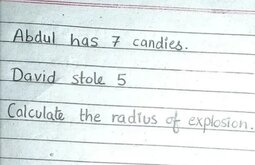 Abdul has 7 candies.
David stole 5
Calculate the radius of explosion.